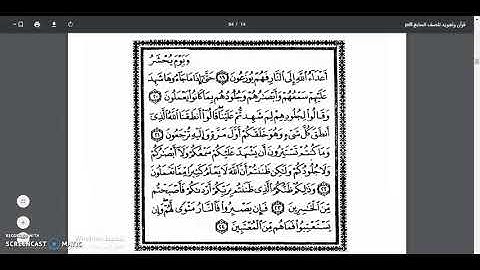 قرآن وتجويد للصف السابع.pdf
وَيَوْمَ يُحْشَرُ
أَعْدَآءُ ٱللَّهِ إِلَى ٱلنَّارِ فَهُمْ يُوزَعُونَ ١٩ حَتَّىٰٓ إِذَا مَا جَآءُوهَا شَهِدَ
عَلَيْهِمْ سَمْعُهُمْ وَأَبْصَٰرُهُمْ وَجُلُودُهُم بِمَا كَانُوا۟ يَعْمَلُونَ ٢٠
وَقَالُوا۟ لِجُلُودِهِمْ لِمَ شَهِدتُّمْ عَلَيْنَا قَالُوٓا۟ أَنطَقَنَا ٱللَّهُ ٱلَّذِىٓ
أَنطَقَ كُلَّ شَىْءٍ وَهُوَ خَلَقَكُمْ أَوَّلَ مَرَّةٍ وَإِلَيْهِ تُرْجَعُونَ ٢١
وَمَا كُنتُمْ تَسْتَتِرُونَ أَن يَشْهَدَ عَلَيْكُمْ سَمْعُكُمْ وَلَآ أَبْصَٰرُكُمْ
وَلَا جُلُودُكُمْ وَلَٰكِن ظَنَنتُمْ أَنَّ ٱللَّهَ لَا يَعْلَمُ كَثِيرًا مِّمَّا تَعْمَلُونَ
٢٢ وَذَٰلِكُمْ ظَنُّكُمُ ٱلَّذِى ظَنَنتُم بِرَبِّكُمْ أَرْدَىٰكُمْ فَأَصْبَحْتُم
مِّنَ ٱلْخَٰسِرِينَ ٢٣ فَإِن يَصْبِرُوا۟ فَٱلنَّارُ مَثْوًى لَّهُمْ وَإِن
يَسْتَعْتِبُوا۟ فَمَا هُم مِّنَ ٱلْمُعْتَبِينَ ٢٤
RECORDED WITH
SCREENCAST MATIC